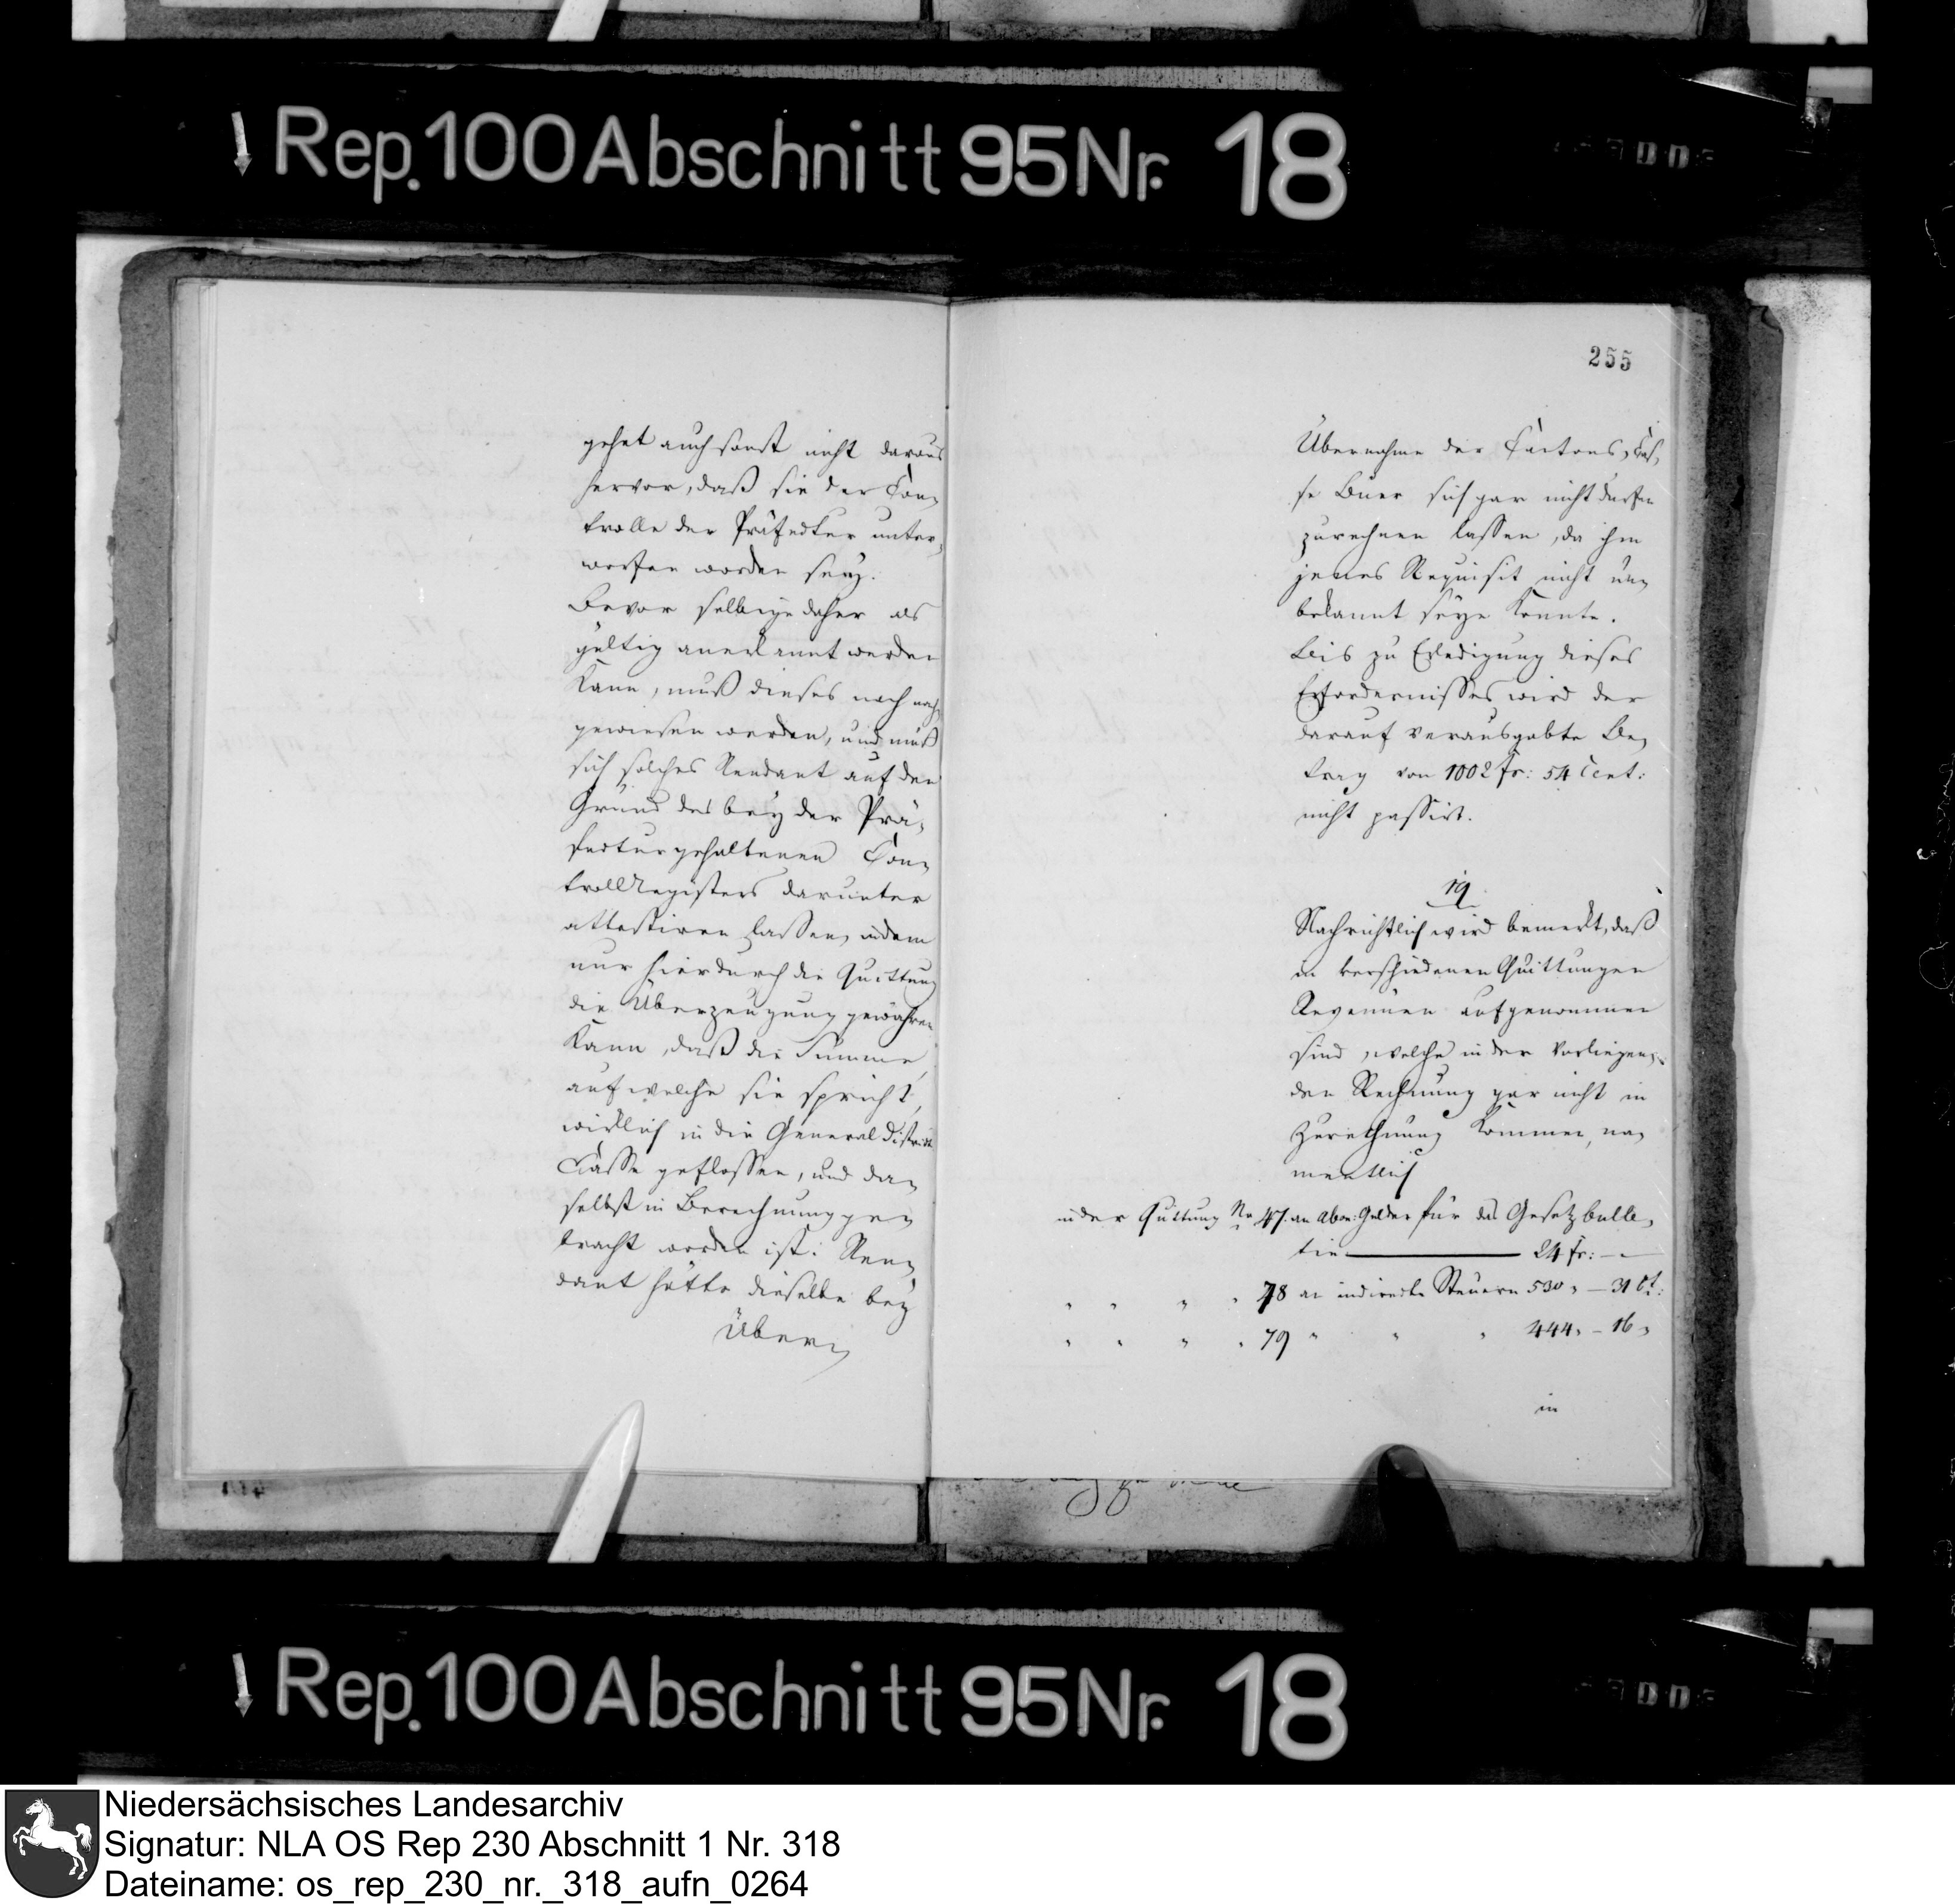 Rep. 100 Abschnitt 95 Nr. 18
gehet auch sonst nicht daraus
hervor, daß sie der Con-
trolle der Präfectur unter-
worfen worden sey.
Bevor selbige daher als
gültig anerkannt werden
kann, muß dieses noch nach-
gewiesen werden, und muß
sich solches Rendant auf den
Grund des bey der Prä-
fectur gehaltenen Con-
trollRegisters darunter
attestiren lassen, indem
nur hierdurch die Quittung
die Überzeugung gewähren
kann, daß die Summe,
auf welche sie spricht,
wirklich in die General Districts
Casse geflossen, und da-
selbst in Berechnung ge-
bracht worden ist. Ren-
dant hätte dieselbe bey
Über-
255
Übernahme der Cantons-Cas-
se Buer sich gar nicht dürfen
zurechnen lassen, da ihm
jenes Requisit nicht un-
bekannt seyn konnte.
Bis zu Erledigung dieses
Erfordernisses wird der
darauf verausgabte Be-
trag von 1002 fr: 54 Cent:
nicht passirt.
19
Nachrichtlich wird bemerkt, daß
in verschiedenen Quittungen
Revenüen aufgenommen
sind, welche in der vorliegen-
den Rechnung gar nicht in
Zurechnung kommen, na-
mentlich
in der Quittung No 47. an Abon: Gelder für das Gesetzbulle-
tin — 24 fr: — -
" " " " 78 an indirecte Steuern 530 " — 31 Ct:
" " " " 79 " " " 444 " — 16 "
in
Rep. 100 Abschnitt 95 Nr. 18
Niedersächsisches Landesarchiv
Signatur: NLA OS Rep 230 Abschnitt 1 Nr. 318
Dateiname: os_rep_230_nr._318_aufn_0264